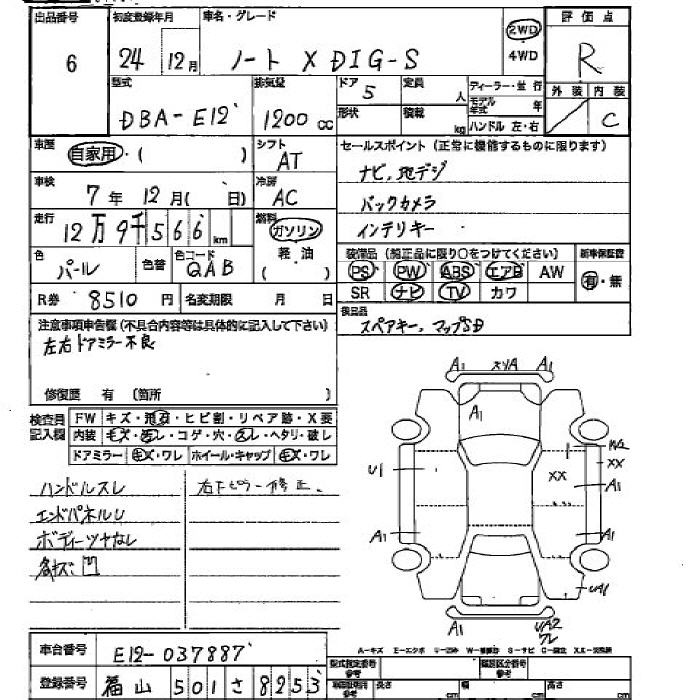 出品番号 初度登録年月 車名・グレード 評価点
6 24 12月 ノート X DIG-S 2WD 4WD R
型式 排気量 ドア 5 定員 人 ディーラー・並行 外装 内装
DBA-E12 1200cc 形状 積載 kg モデル年式 年 C
ハンドル 左・右
車歴 自家用・( ) シフト AT セールスポイント (正常に機能するものに限ります)
車検 7年 12月( 日) 冷房 AC ナビ、地デジ
バックカメラ
走行 12万9千566km 燃料 ガソリン 軽油 ( ) インテリキー
色 パール 色替 色コード QAB 装備品 (純正品に限り○をつけてください) 新車保証書
PS PW ABS エアB AW 有・無
R券 8510円 名変期限 月 日 SR ナビ TV カワ
注意事項申告欄(不具合内容等は具体的に記入して下さい)
スペアキー、マップSD
左右ドアミラー不良
修復歴 有 (箇所 )
検査員記入欄 FW キズ・飛石・ヒビ割・リペア跡・X要
内装 キズ・汚レ・コゲ・穴・スレ・ヘタリ・破レ
ドアミラー キズ・ワレ ホイール・キャップ キズ・ワレ
ハンドルスレ
エンドパネルU
ボディーツヤなし
A1 A1
A1
U1 XX XX
A1
A1 A1
UA1
A1 UA2
ワレ
車台番号 E12-037887
登録番号 福山 501 さ 8253
型式指定番号 参考 類別区分番号 参考
長さ cm 幅 cm 高さ cm